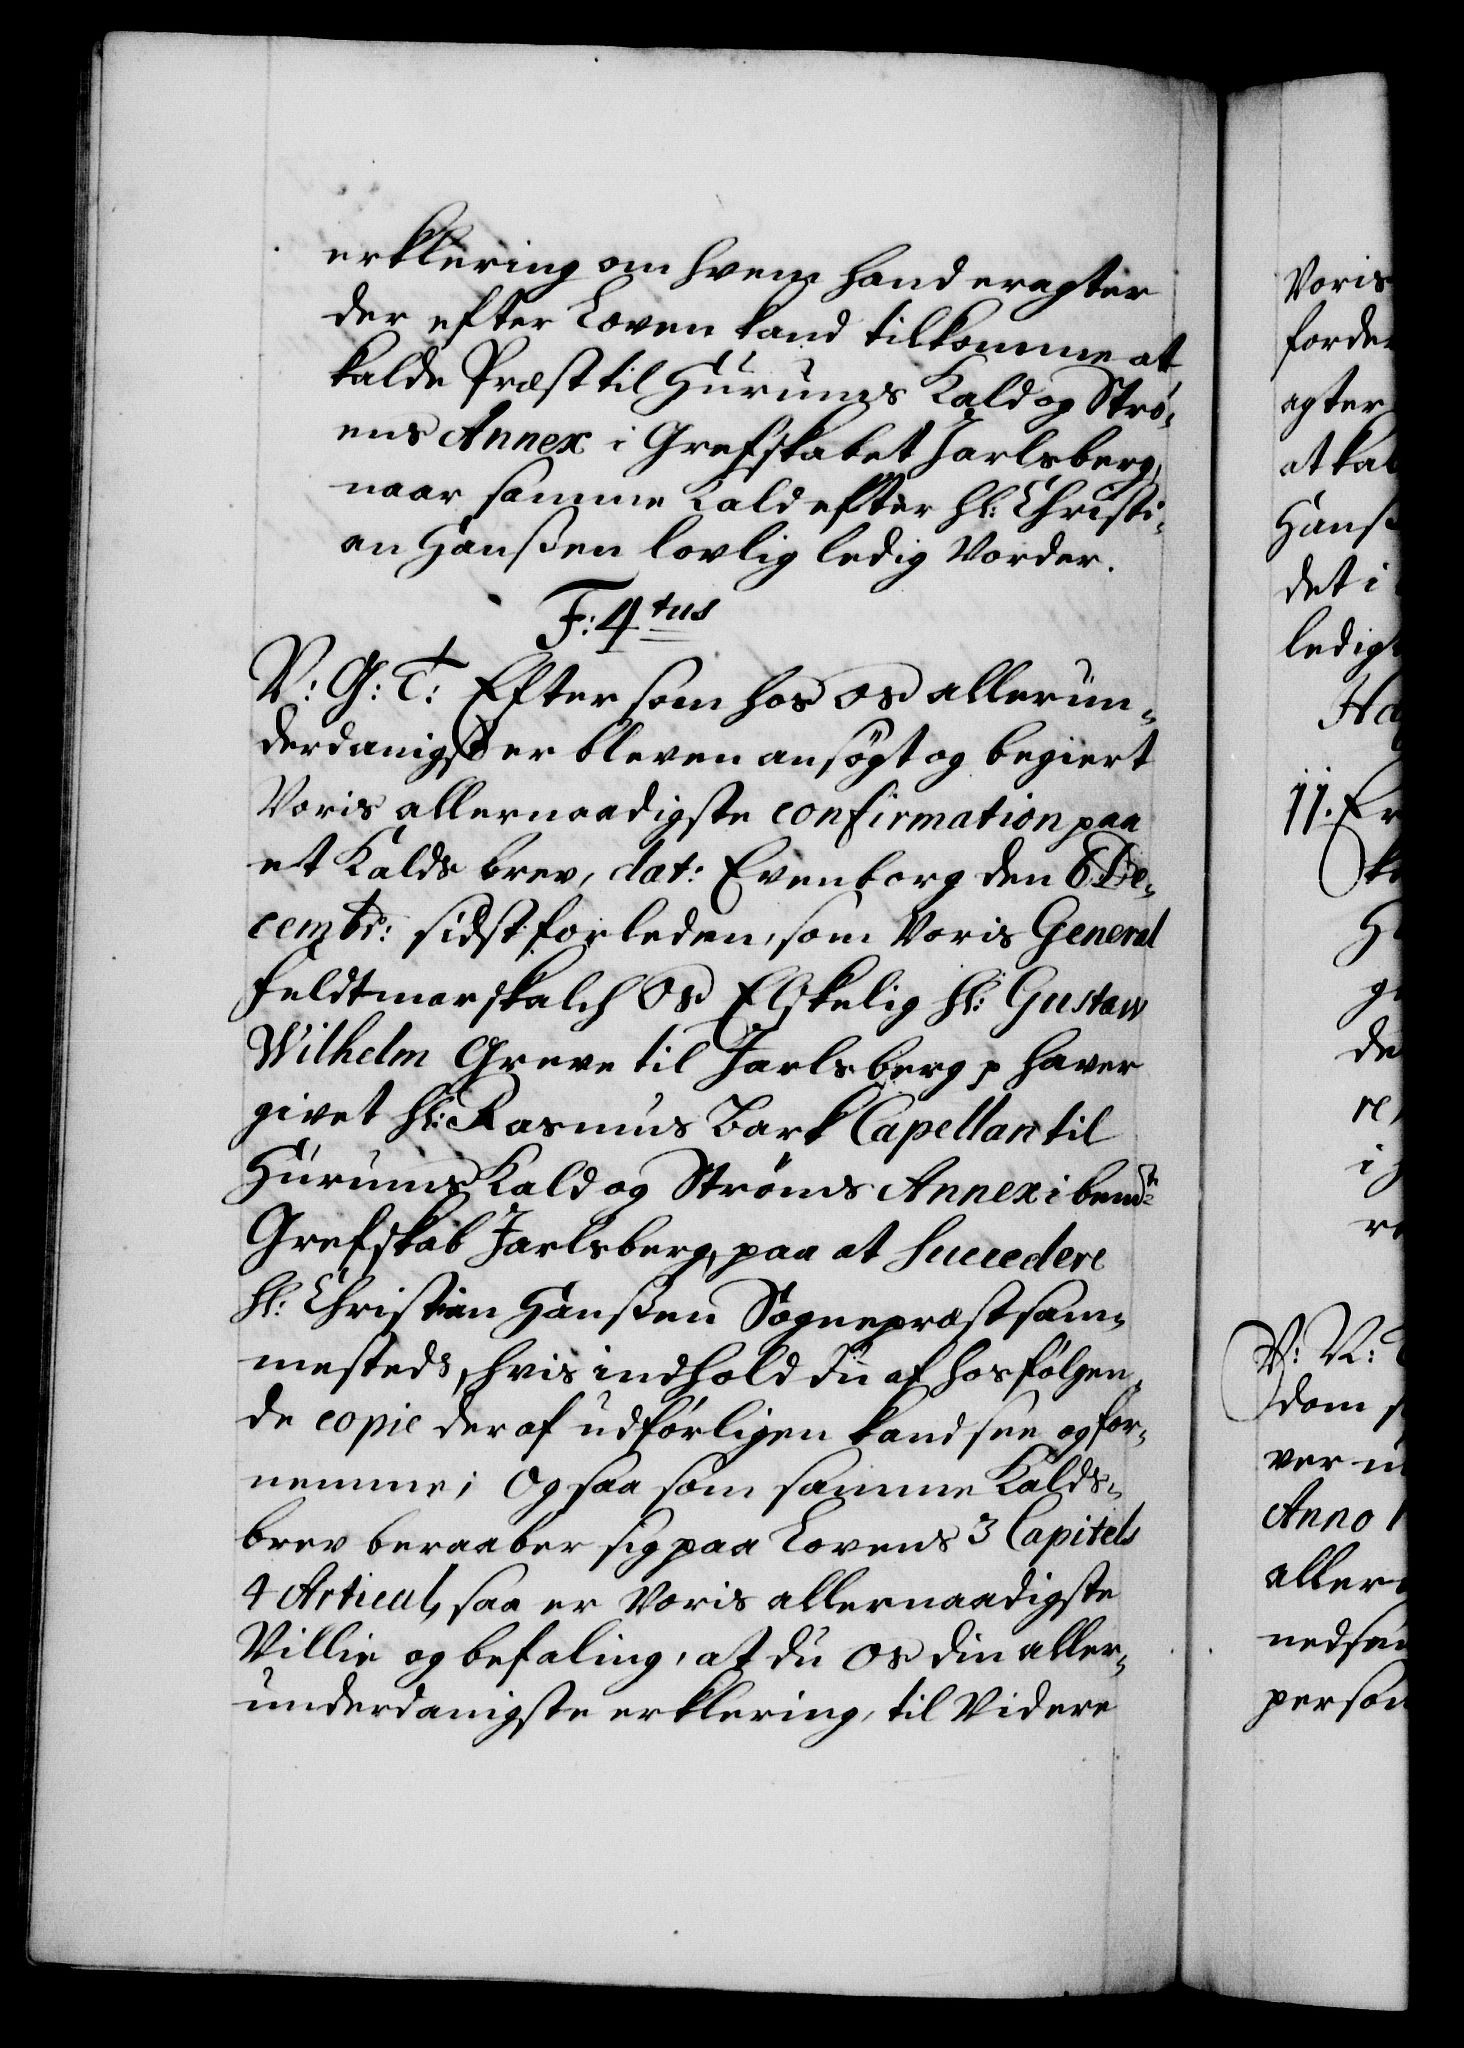 erklering om hvem hand eragter
der efter Loven kand tilkomme at
kalde Præst til Hurums Kald og Strø-
ens Annex i Grefskabet Jarlsberg,
naar samme Kald efter Hr: Christi-
an Hanßen lovlig ledig Vorder.
F: 4tus
V: G: T: Eftersom hos os allerun-
derdanigst er bleven ansøgt og begiert
Voris allernaadigste confirmation paa
et Kalds brev, dat: Evenborg den 6 De-
cembr: sidstforleden, som Voris General
feldtmarskalch Os Elskelig Hr: Gustav
Wilhelm Greve til Jarlsberg p haver
givet Hr: Rasmus Bark Capellan til
Hurums Kald og Strøms Annex i bemte
Grefskab Jarlsberg, paa at Succedere
Hr: Christian Hanßen Sognepræst sam-
mesteds, hvis indhold du af hosfølgen-
de copie deraf udførligen kand see og for-
nemme; Og saasom samme Kalds-
brev beraaber sig paa Lovens 3 Capitels
4 Articul, saa er Voris allernaadigste
Villie og befaling, at du Os din aller-
underdanigste erklering, til Videre
Voris
forde
agter
at kal
Hanß
det i
ledig
11. Er
de
V: N:
dom
ver
Anno 1
aller
nedsen
person